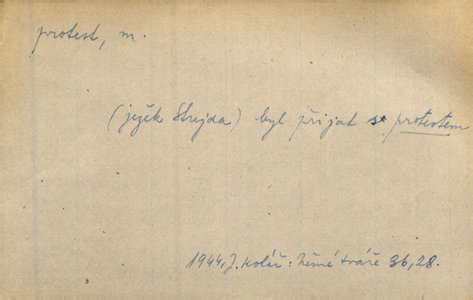 protest, m.
(ježek Strejda) byl přijat se protestem
1944, J. Kolář: Němé tváře 36, 28.